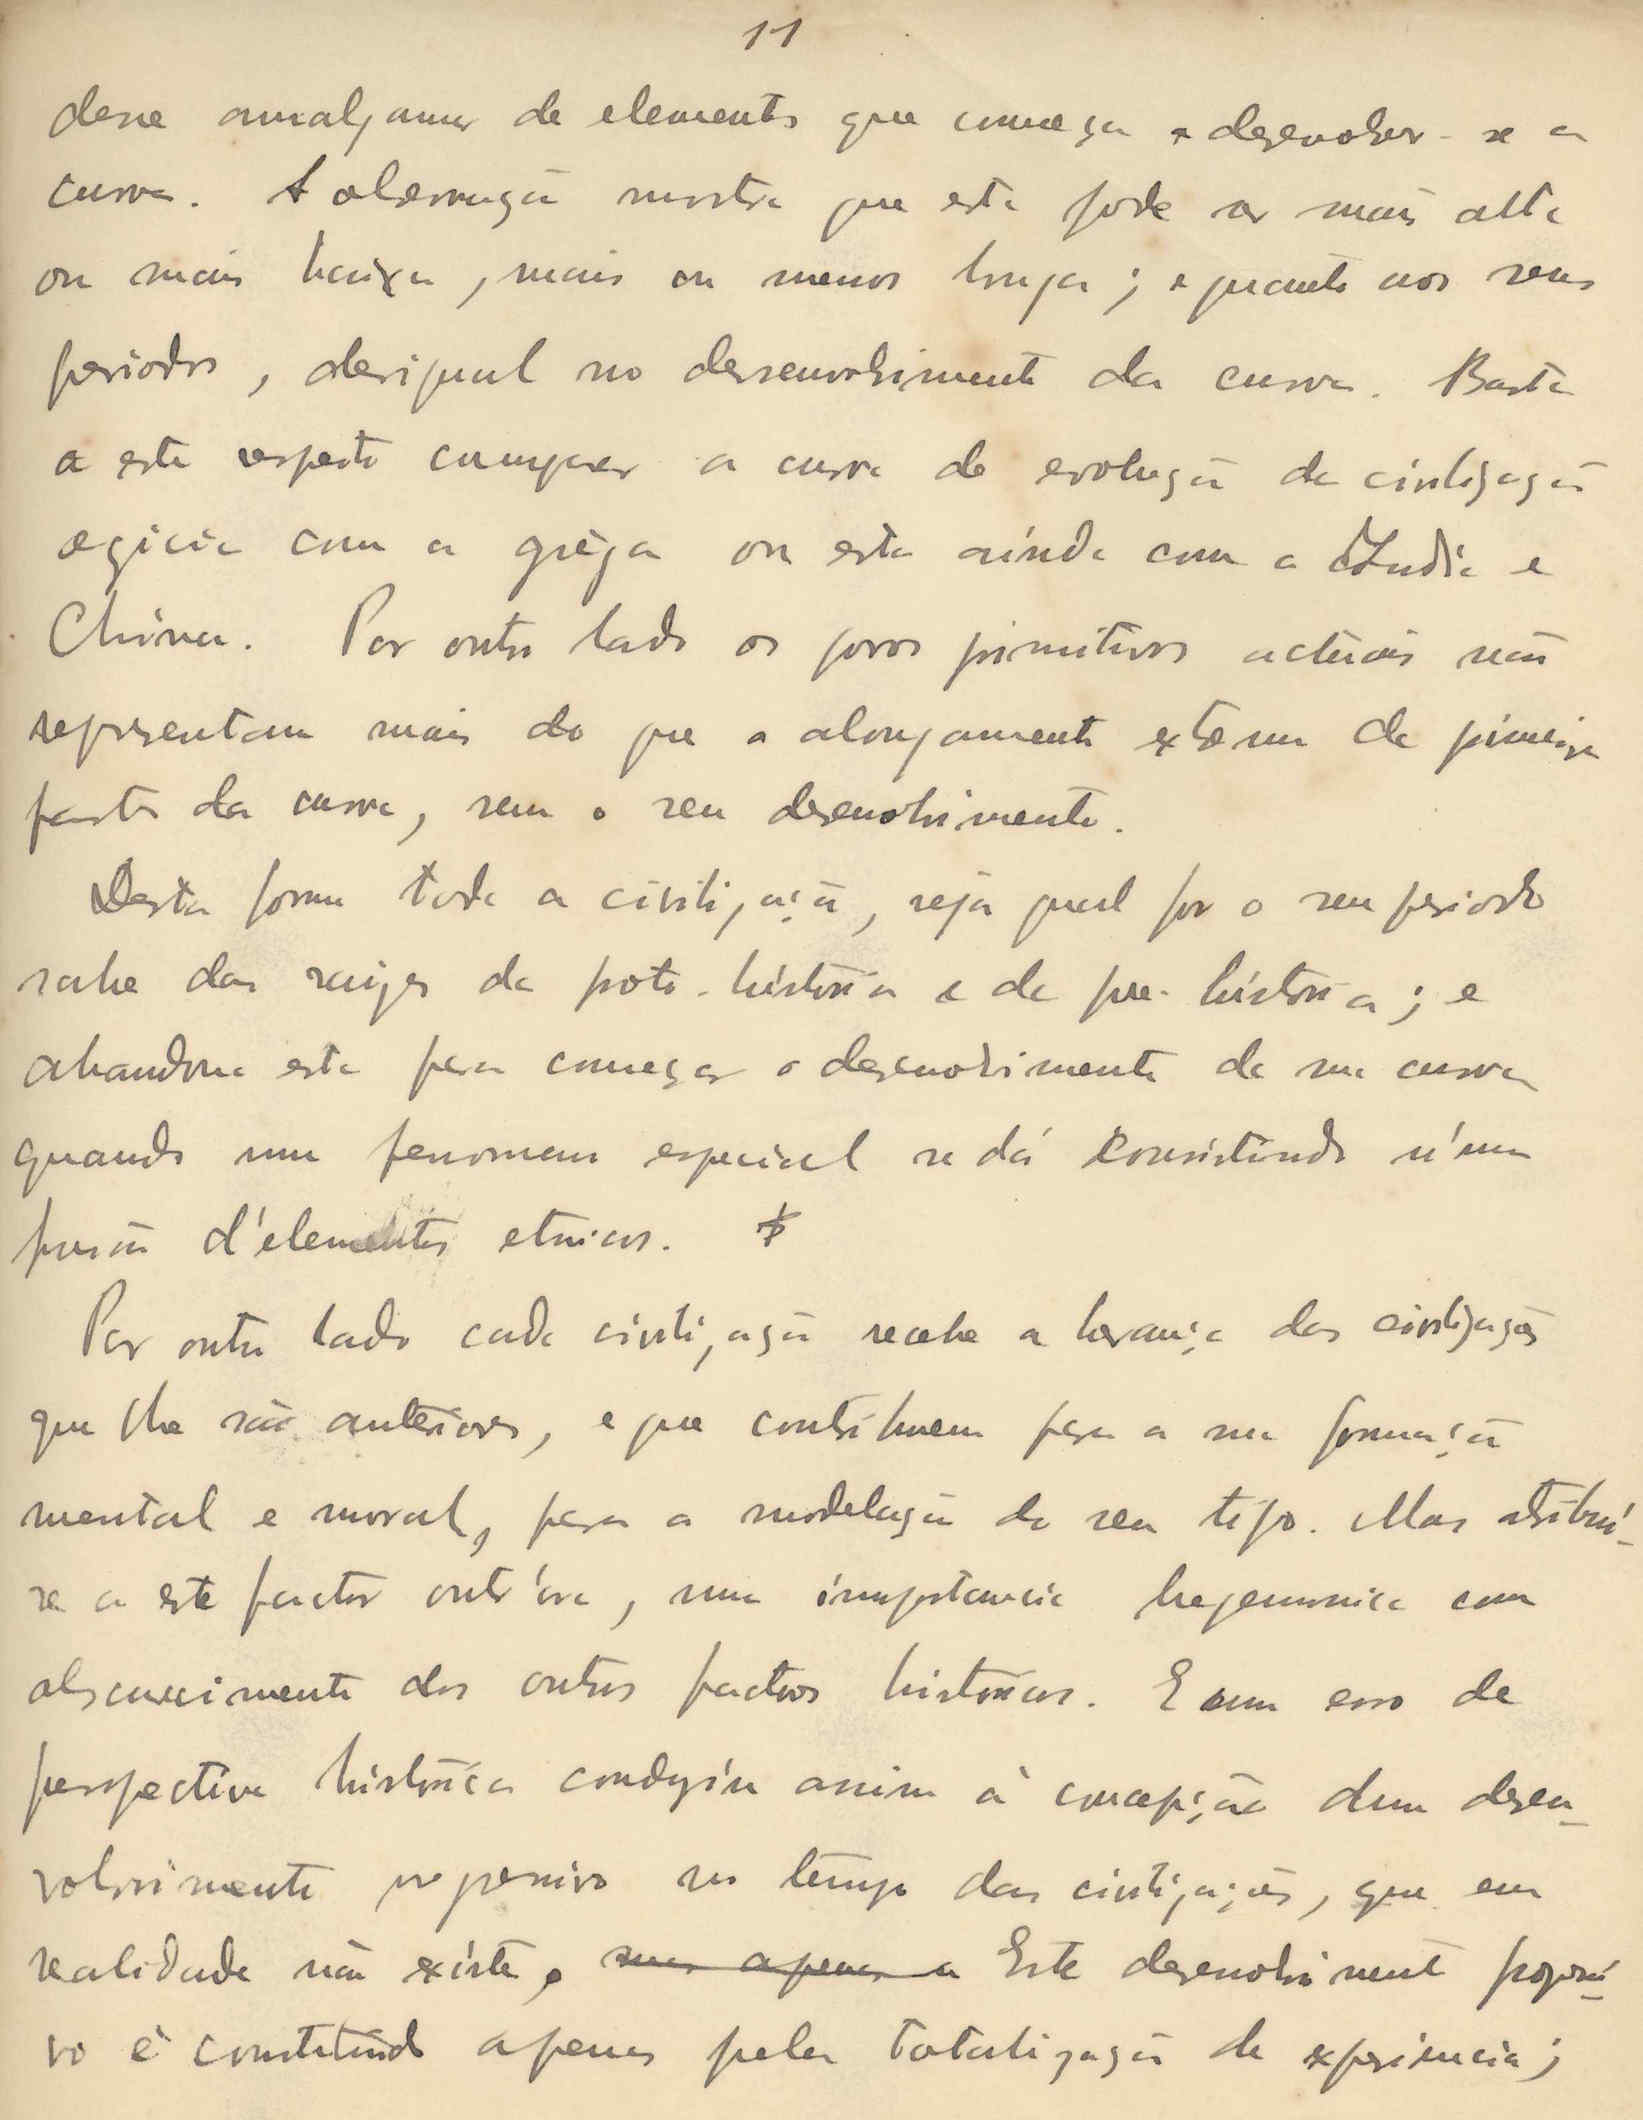 11
desse amalgama de elementos que começa a desenvolver-se a
curva. A observação mostra que esta pode ser mais alta
ou mais baixa, mais ou menos longa; e quanto aos seus
periodos, desigual no desenvolvimento da curva. Basta
a este respeito comparar a curva de evolução da civilização
egicia com a grega ou esta ainda com a India e
China. Por outro lado os povos primitivos actuais não
representam mais do que o alongamento extremo da primeira
parte da curva, sem o seu desenvolvimento.
Desta forma toda a civilização, seja qual for o seu periodo
sahe das raizes da proto-história e da pre-história; e
abandona esta para começar o desenvolvimento da sua curva
quando um fenomeno especial se dá consistindo n'uma
fusão d'elementos etnicos.
Por outro lado cada civilização recebe a herança das civilizações
que lhe são anteriores, e que contribuem para a sua formação
mental e moral, para a modelação do seu tipo. Mas atribui-
se a este factor outr'ora, uma importancia hegemonica com
obscurecimento dos outros factores historicos. E um erro de
perspectiva histórica conduziu assim à concepção dum desen-
volvimento progressivo no tempo das civilizações, que em
realidade não existe, mas apenas a Este desenvolvimento progressi-
vo é constituido apenas pela totalização da experiencia;